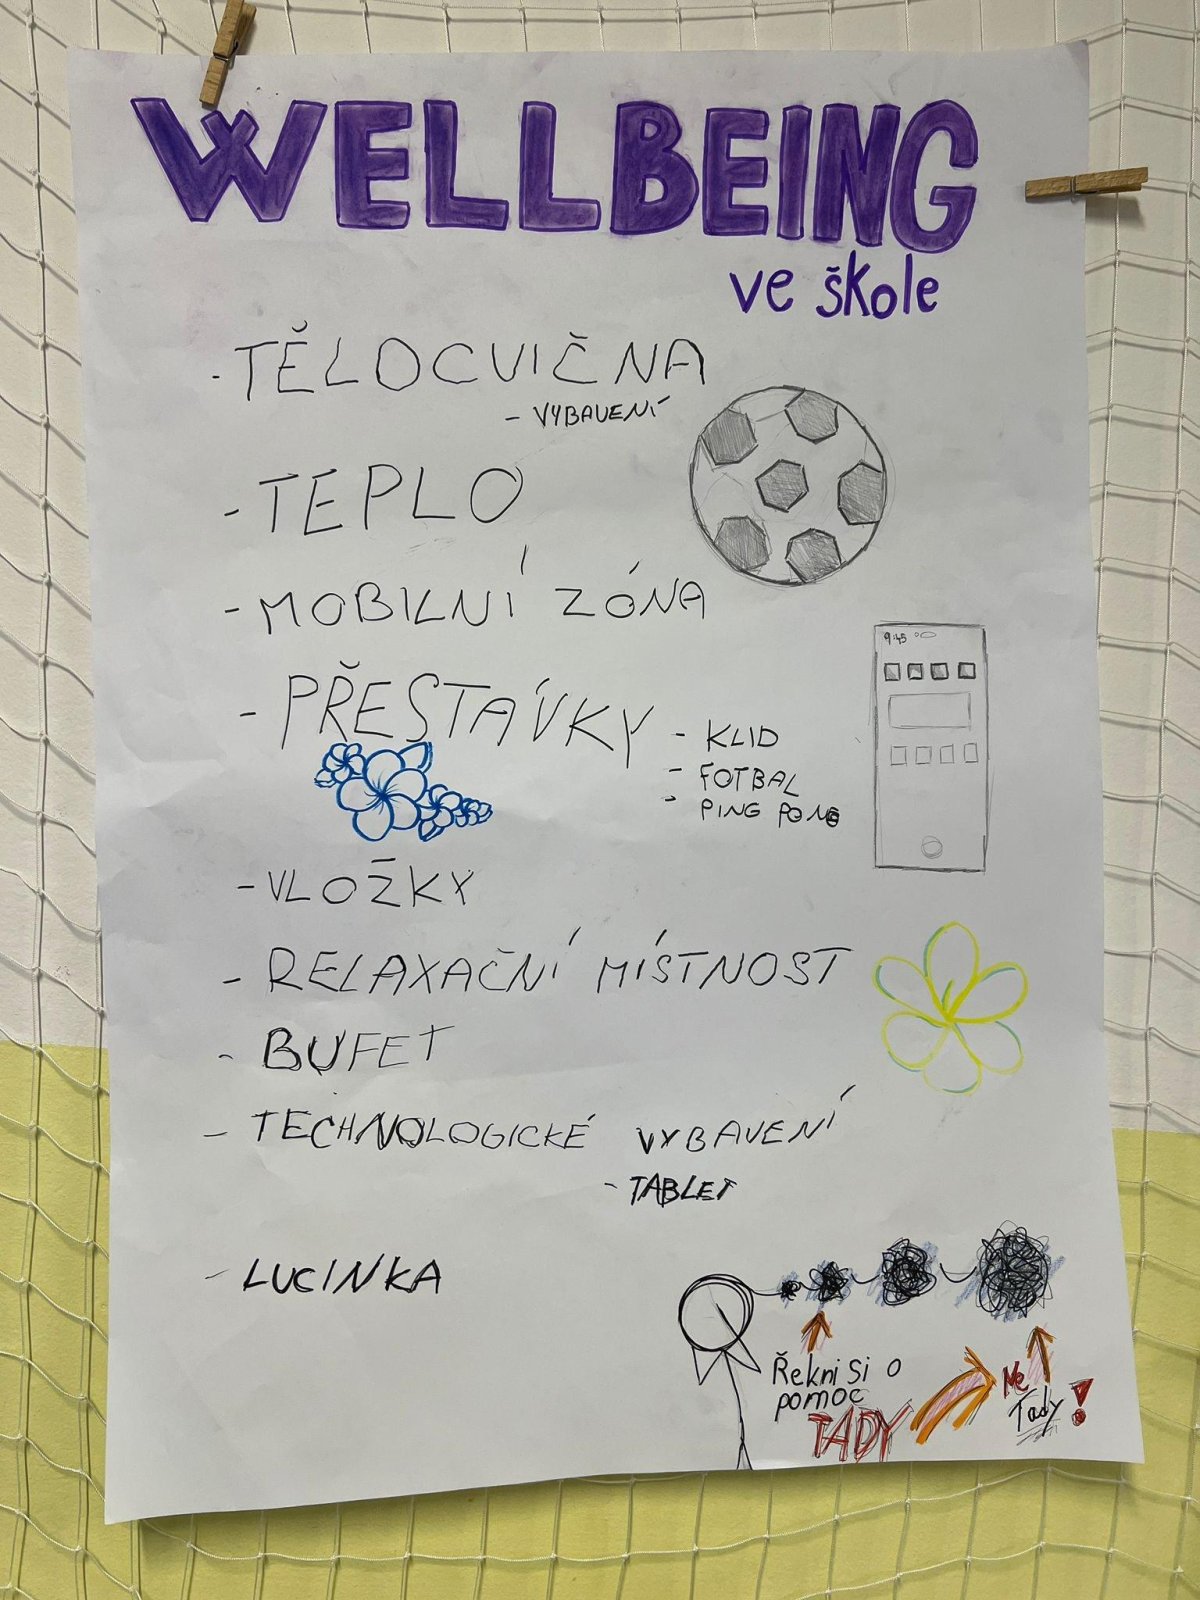 WELLBEING
ve škole
- TĚLOCVIČNA
- VYBAVENÍ
- TEPLO
- MOBILNÍ ZÓNA
9:45
- PŘESTÁVKY
- KLID
- FOTBAL
- PING PONG
- VLOŽKY
- RELAXAČNÍ MÍSTNOST
- BUFET
- TECHNOLOGICKÉ VYBAVENÍ
- TABLET
- LUCINKA
Řekni si o
pomoc
TADY
Ne
Tady!